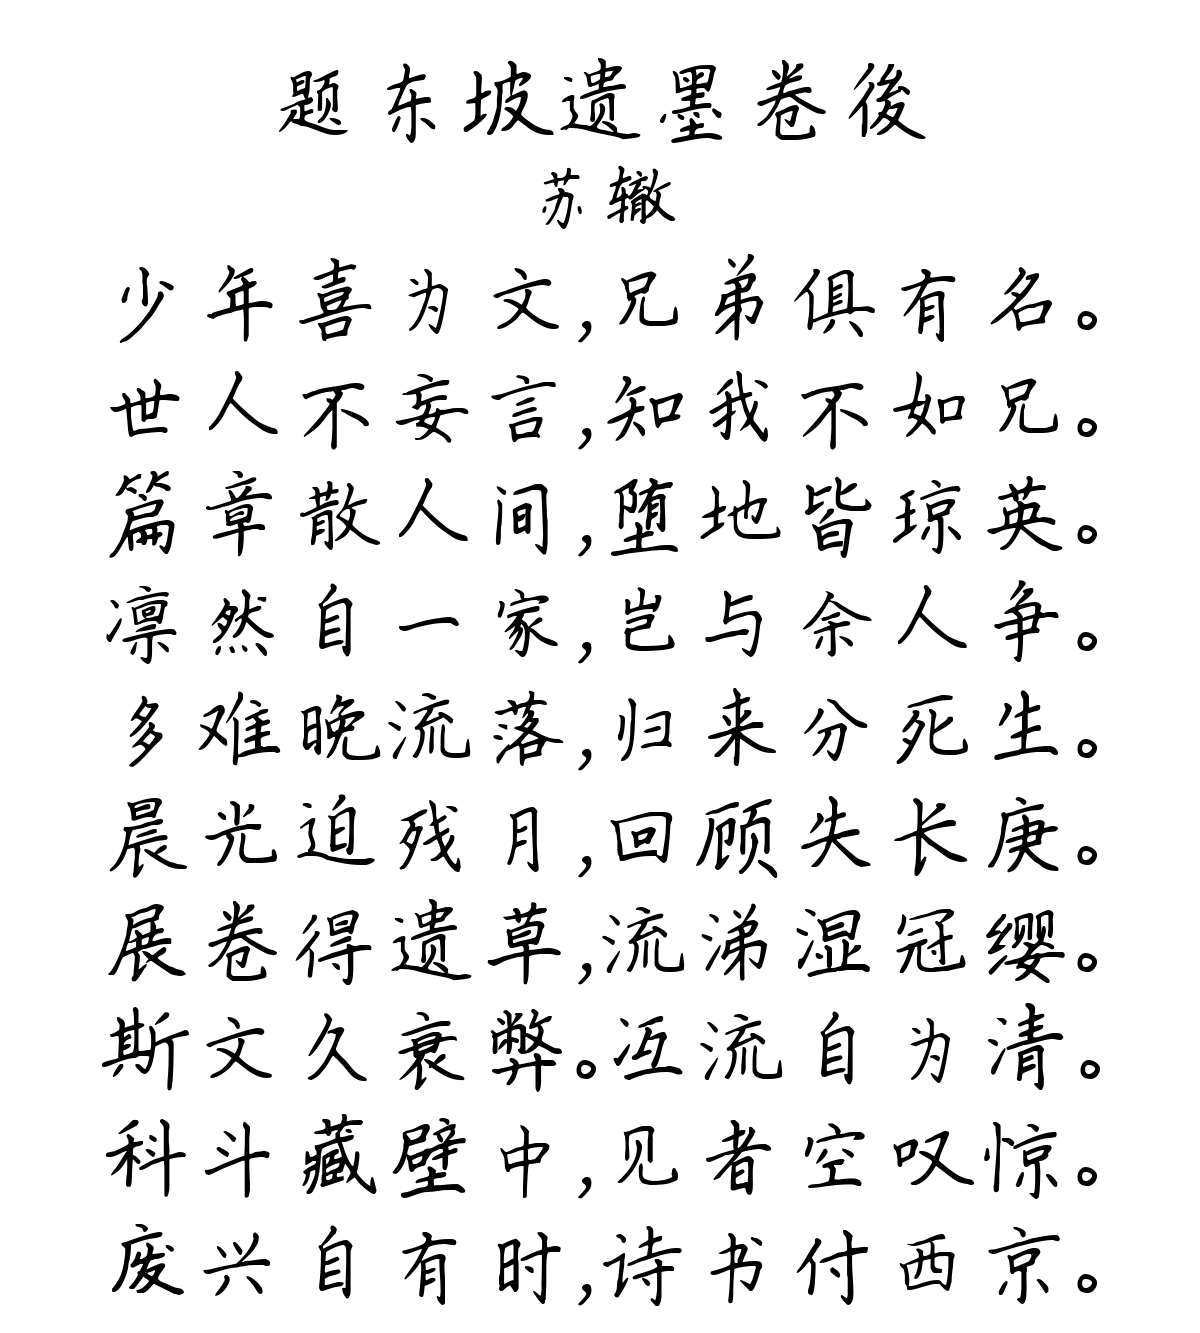 题东坡遗墨卷後
苏辙
少年喜为文,兄弟俱有名。
世人不妄言,知我不如兄。
篇章散人间,堕地皆琼英。
凛然自一家,岂与余人争。
多难晚流落,归来分死生。
晨光迫残月,回顾失长庚。
展卷得遗草,流涕湿冠缨。
斯文久衰弊。冱流自为清。
科斗藏壁中,见者空叹惊。
废兴自有时,诗书付西京。